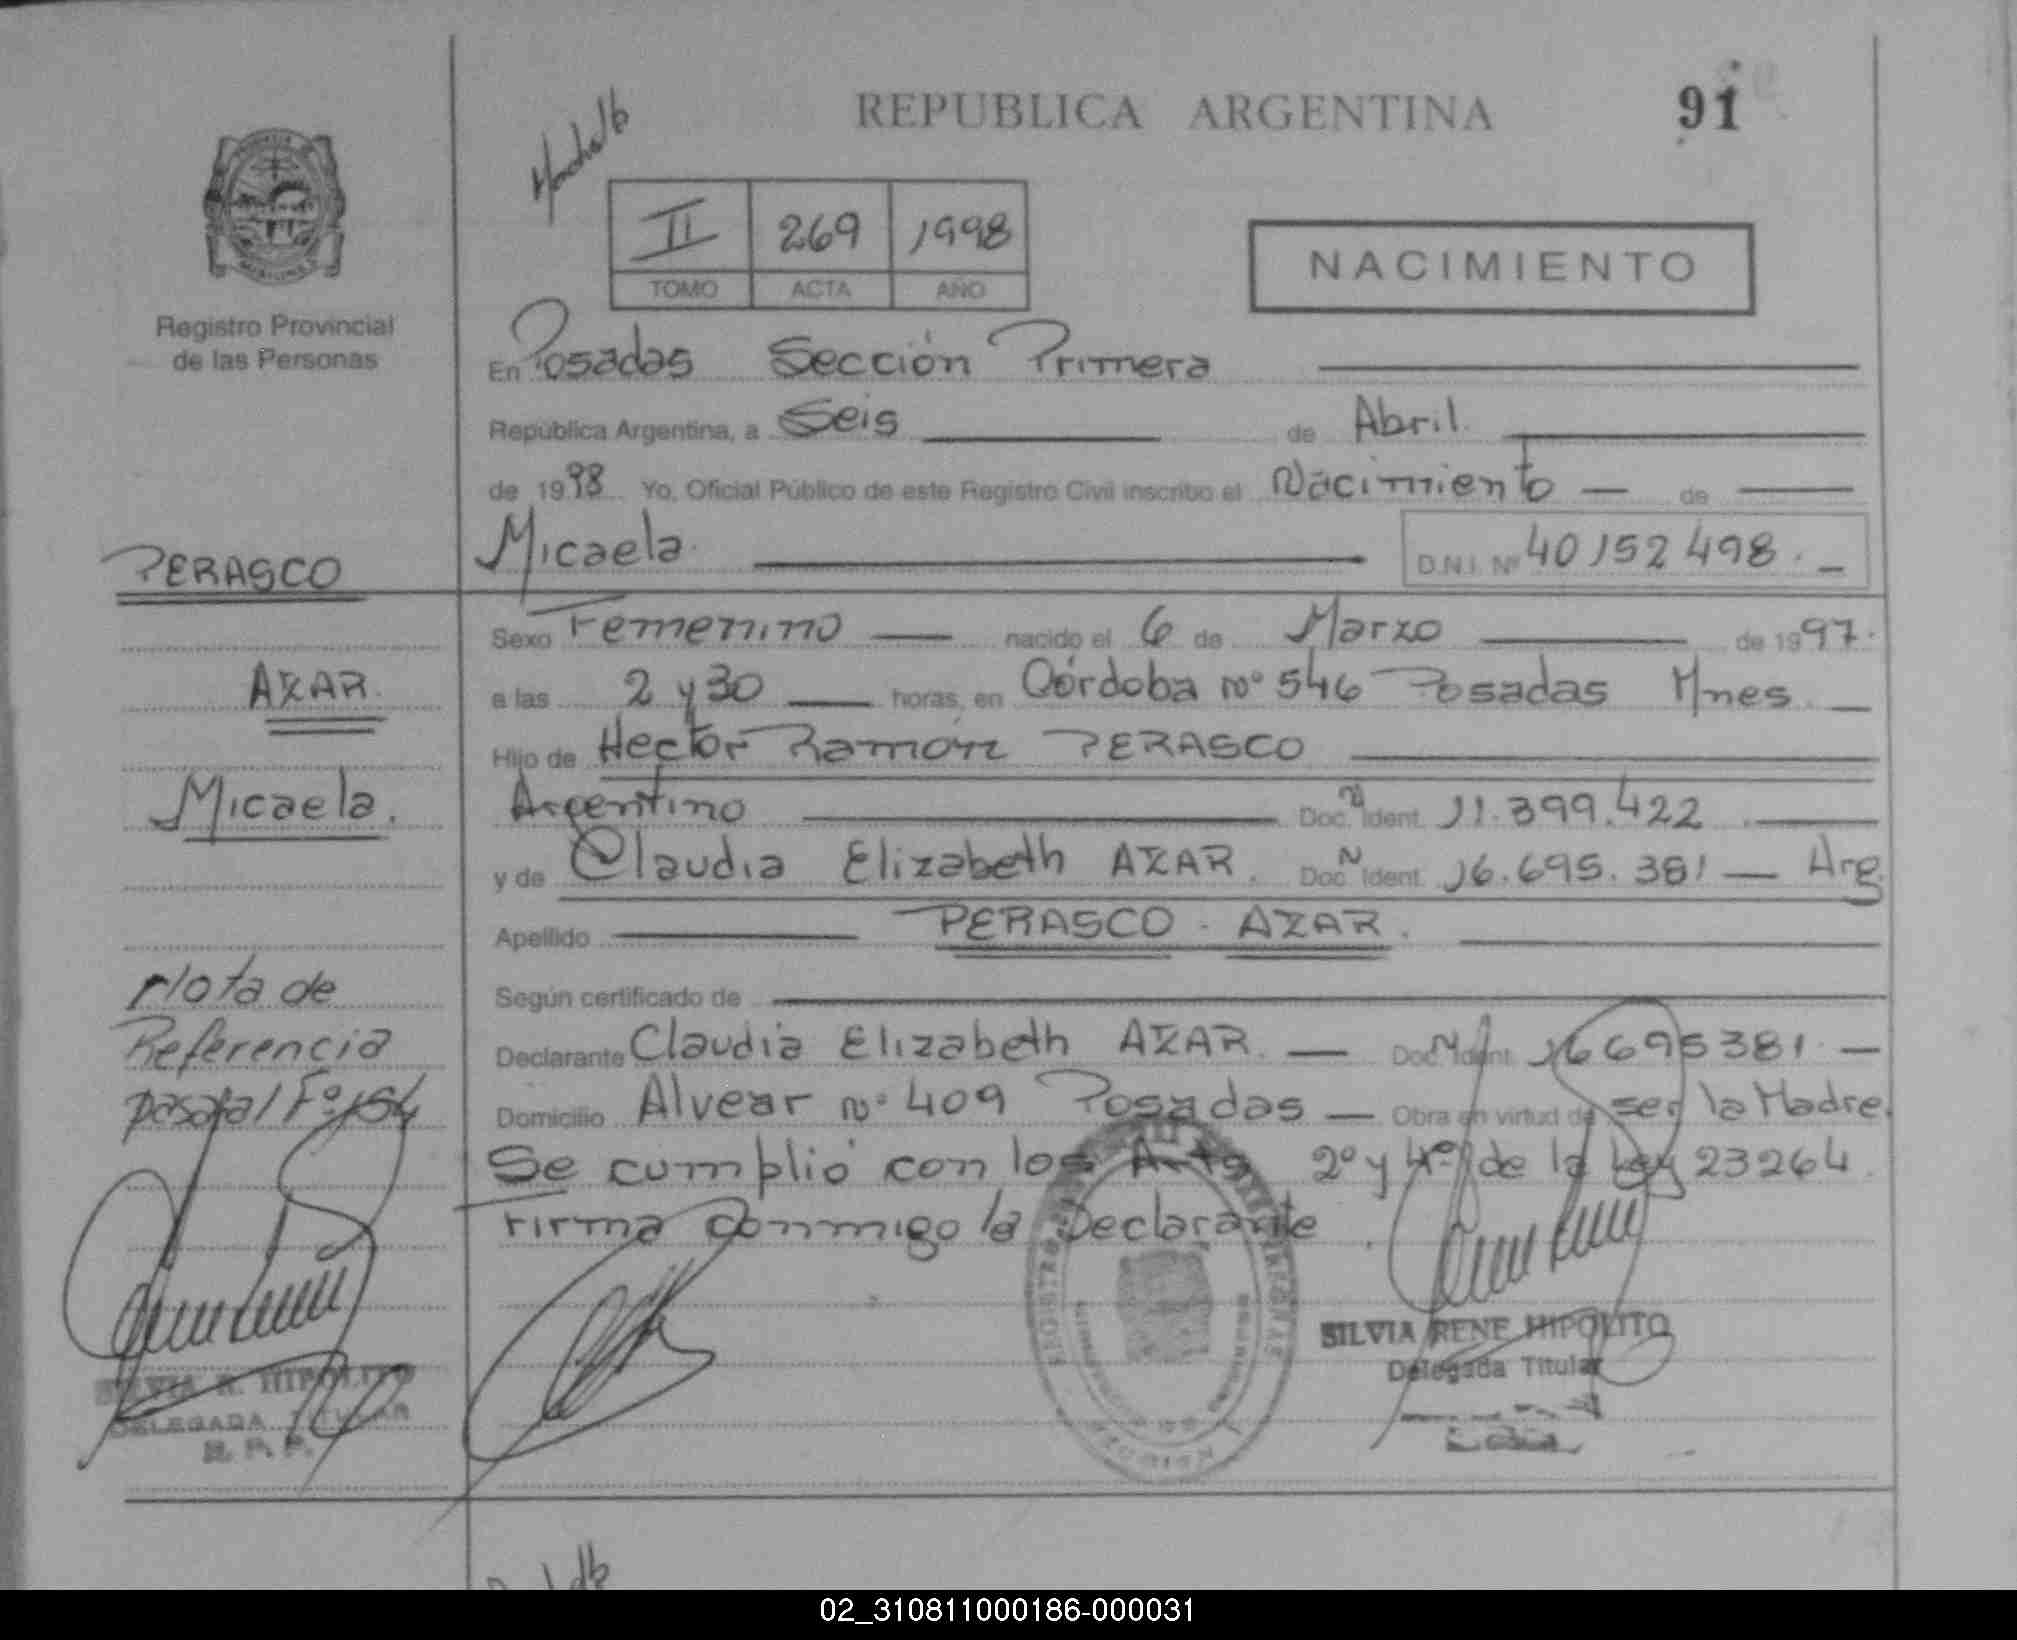 REPUBLICA ARGENTINA
91
II 269 1998
TOMO ACTA AÑO
NACIMIENTO
Registro Provincial
de las Personas
En Posadas Sección Primera
República Argentina, a Seis de Abril
de 1998 Yo, Oficial Público de este Registro Civil inscribo el Nacimiento de
Micaela D.N.I. Nº 40152498.
Sexo Femenino nacido el 6 de Marzo de 1997.
a las 2 y 30 horas, en Córdoba nº 546 Posadas Mnes.
Hijo de Hector Ramón PERASCO
Argentino Doc. N Ident. 11.399.422
y de Claudia Elizabeth AZAR. Doc. N Ident. 16.695.381 Arg
Apellido PERASCO - AZAR.
Según certificado de
Declarante Claudia Elizabeth AZAR. Doc. N Ident. 16695381
Domicilio Alvear nº 409 Posadas Obra en virtud de ser la Madre.
Se cumplió con los Arts 2º y 4º de la Ley 23264.
Firma conmigo la Declarante.
SILVIA RENE HIPOLITO
Delegada Titular
PERASCO
AZAR.
Micaela.
Nota de
Referencia
pasa al Fº 154
SILVIA R. HIPOLITO
DELEGADA TITULAR
R. P. P.
02_310811000186-000031